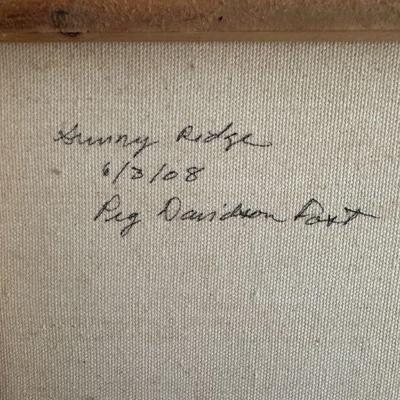 Sunny Ridge
6/3/08
Peg Davidson